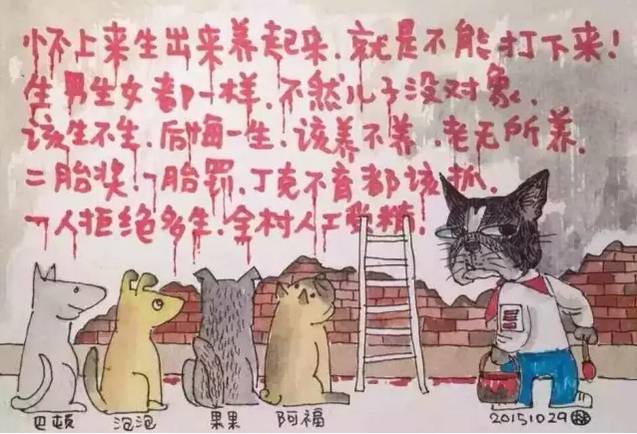 怀上来生出来养起来.就是不能打下来！
生男生女都一样.不然儿子没对象.
该生不生.后悔一生.该养不养.老无所养.
二胎奖.一胎罚.丁克不育都该抓.
一人拒绝多生.全村人工受精.
巴顿 泡泡 果果 阿福
20151029